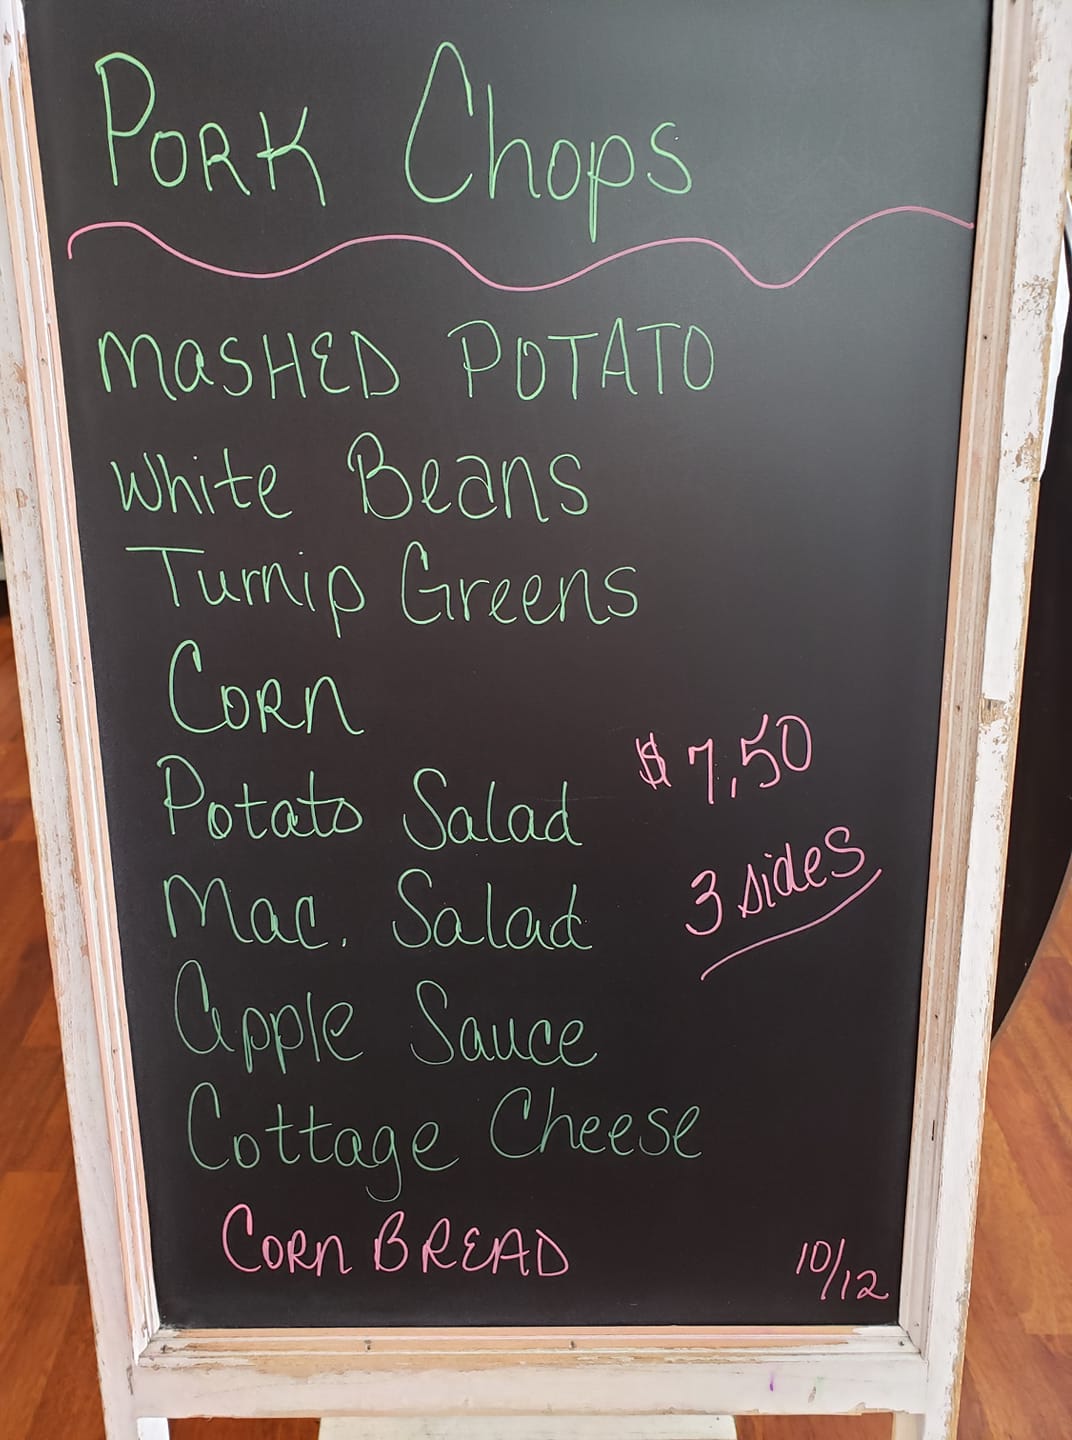 PORK Chops
MASHED POTATO
White Beans
Turnip Greens
CORN
Potato Salad
$7,50
Mac. Salad
3 sides
Apple Sauce
Cottage Cheese
CORN BREAD
10/12